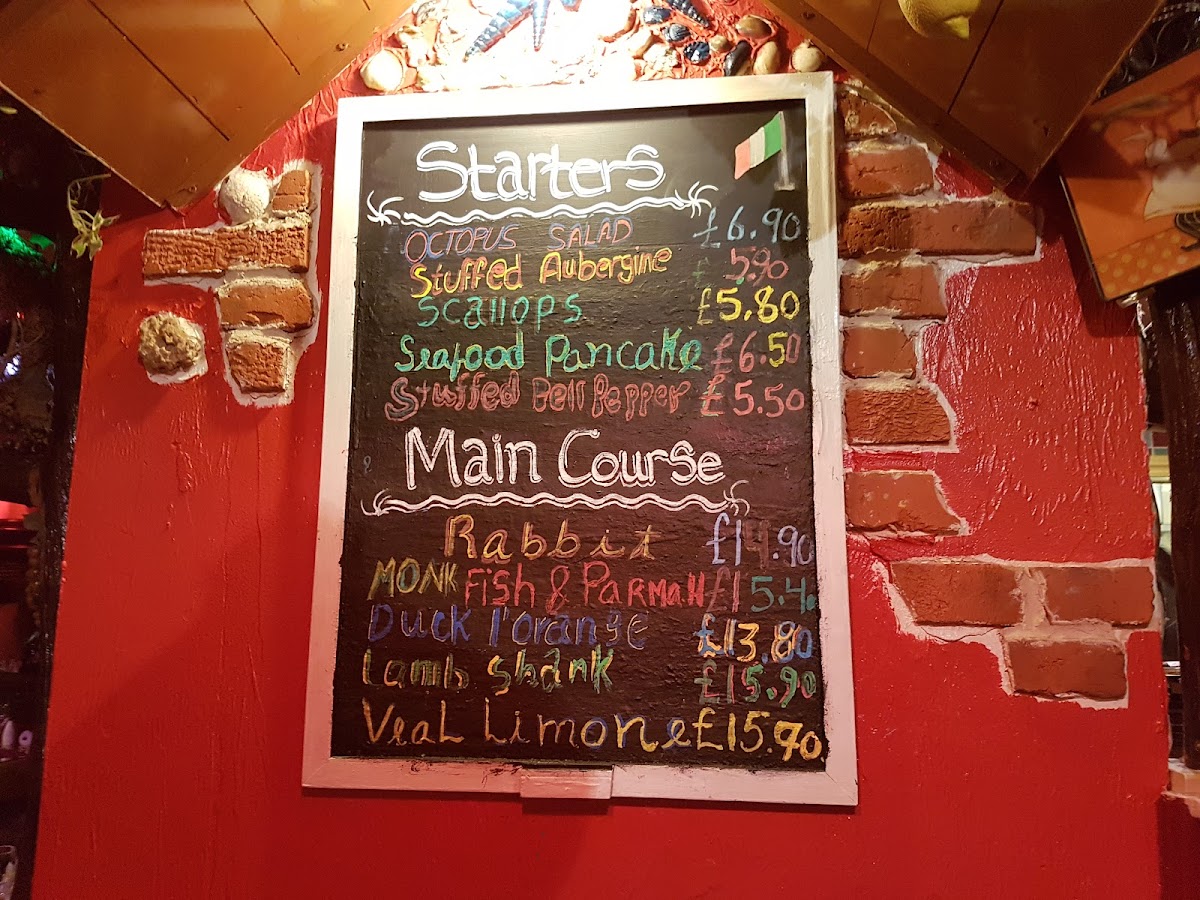 Starters
OCTOPUS SALAD £6.90
Stuffed Aubergine £5.90
Scallops £5.80
Seafood Pancake £6.50
Stuffed Bell Pepper £5.50
Main Course
Rabbit £14.90
MONK Fish & PARMaH £15.40
Duck l'orange £13.80
Lamb shank £15.90
Veal Limone £15.90